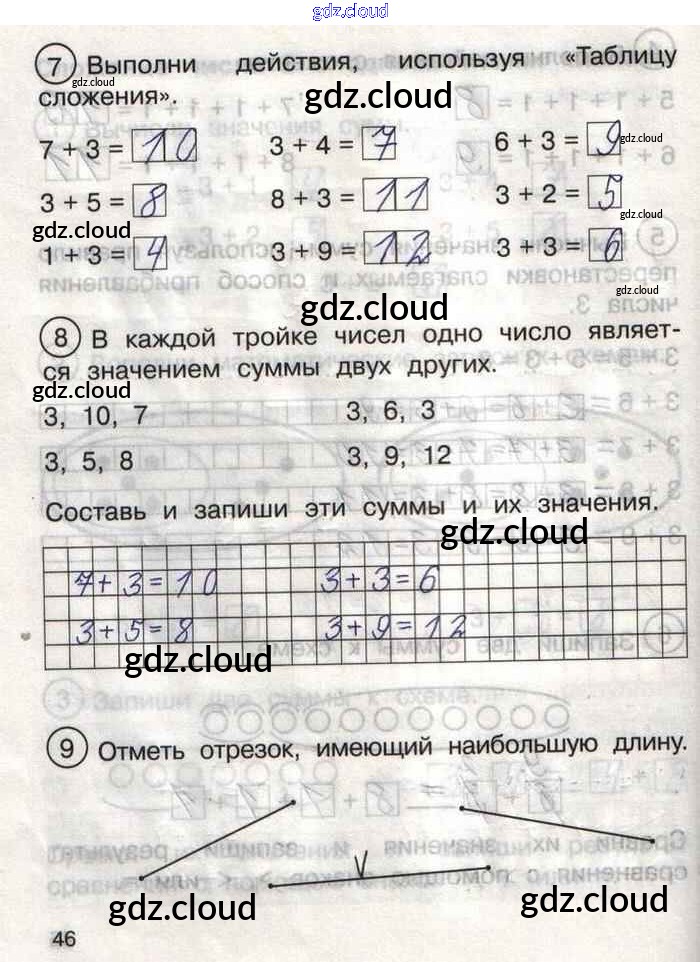 gdz.cloud
7 Выполни действия, используя «Таблицу
gdz.cloud
сложения».
gdz.cloud
7 + 3 = 10 3 + 4 = 7 6 + 3 = 9
gdz.cloud
3 + 5 = 8 8 + 3 = 11 3 + 2 = 5
gdz.cloud gdz.cloud
1 + 3 = 4 3 + 9 = 12 3 + 3 = 6
gdz.cloud
gdz.cloud
8 В каждой тройке чисел одно число являет-
ся значением суммы двух других.
gdz.cloud
3, 10, 7 3, 6, 3
3, 5, 8 3, 9, 12
Составь и запиши эти суммы и их значения.
gdz.cloud
7+3=10 3+3=6
3+5=8 3+9=12
gdz.cloud
9 Отметь отрезок, имеющий наибольшую длину.
V
gdz.cloud gdz.cloud
46